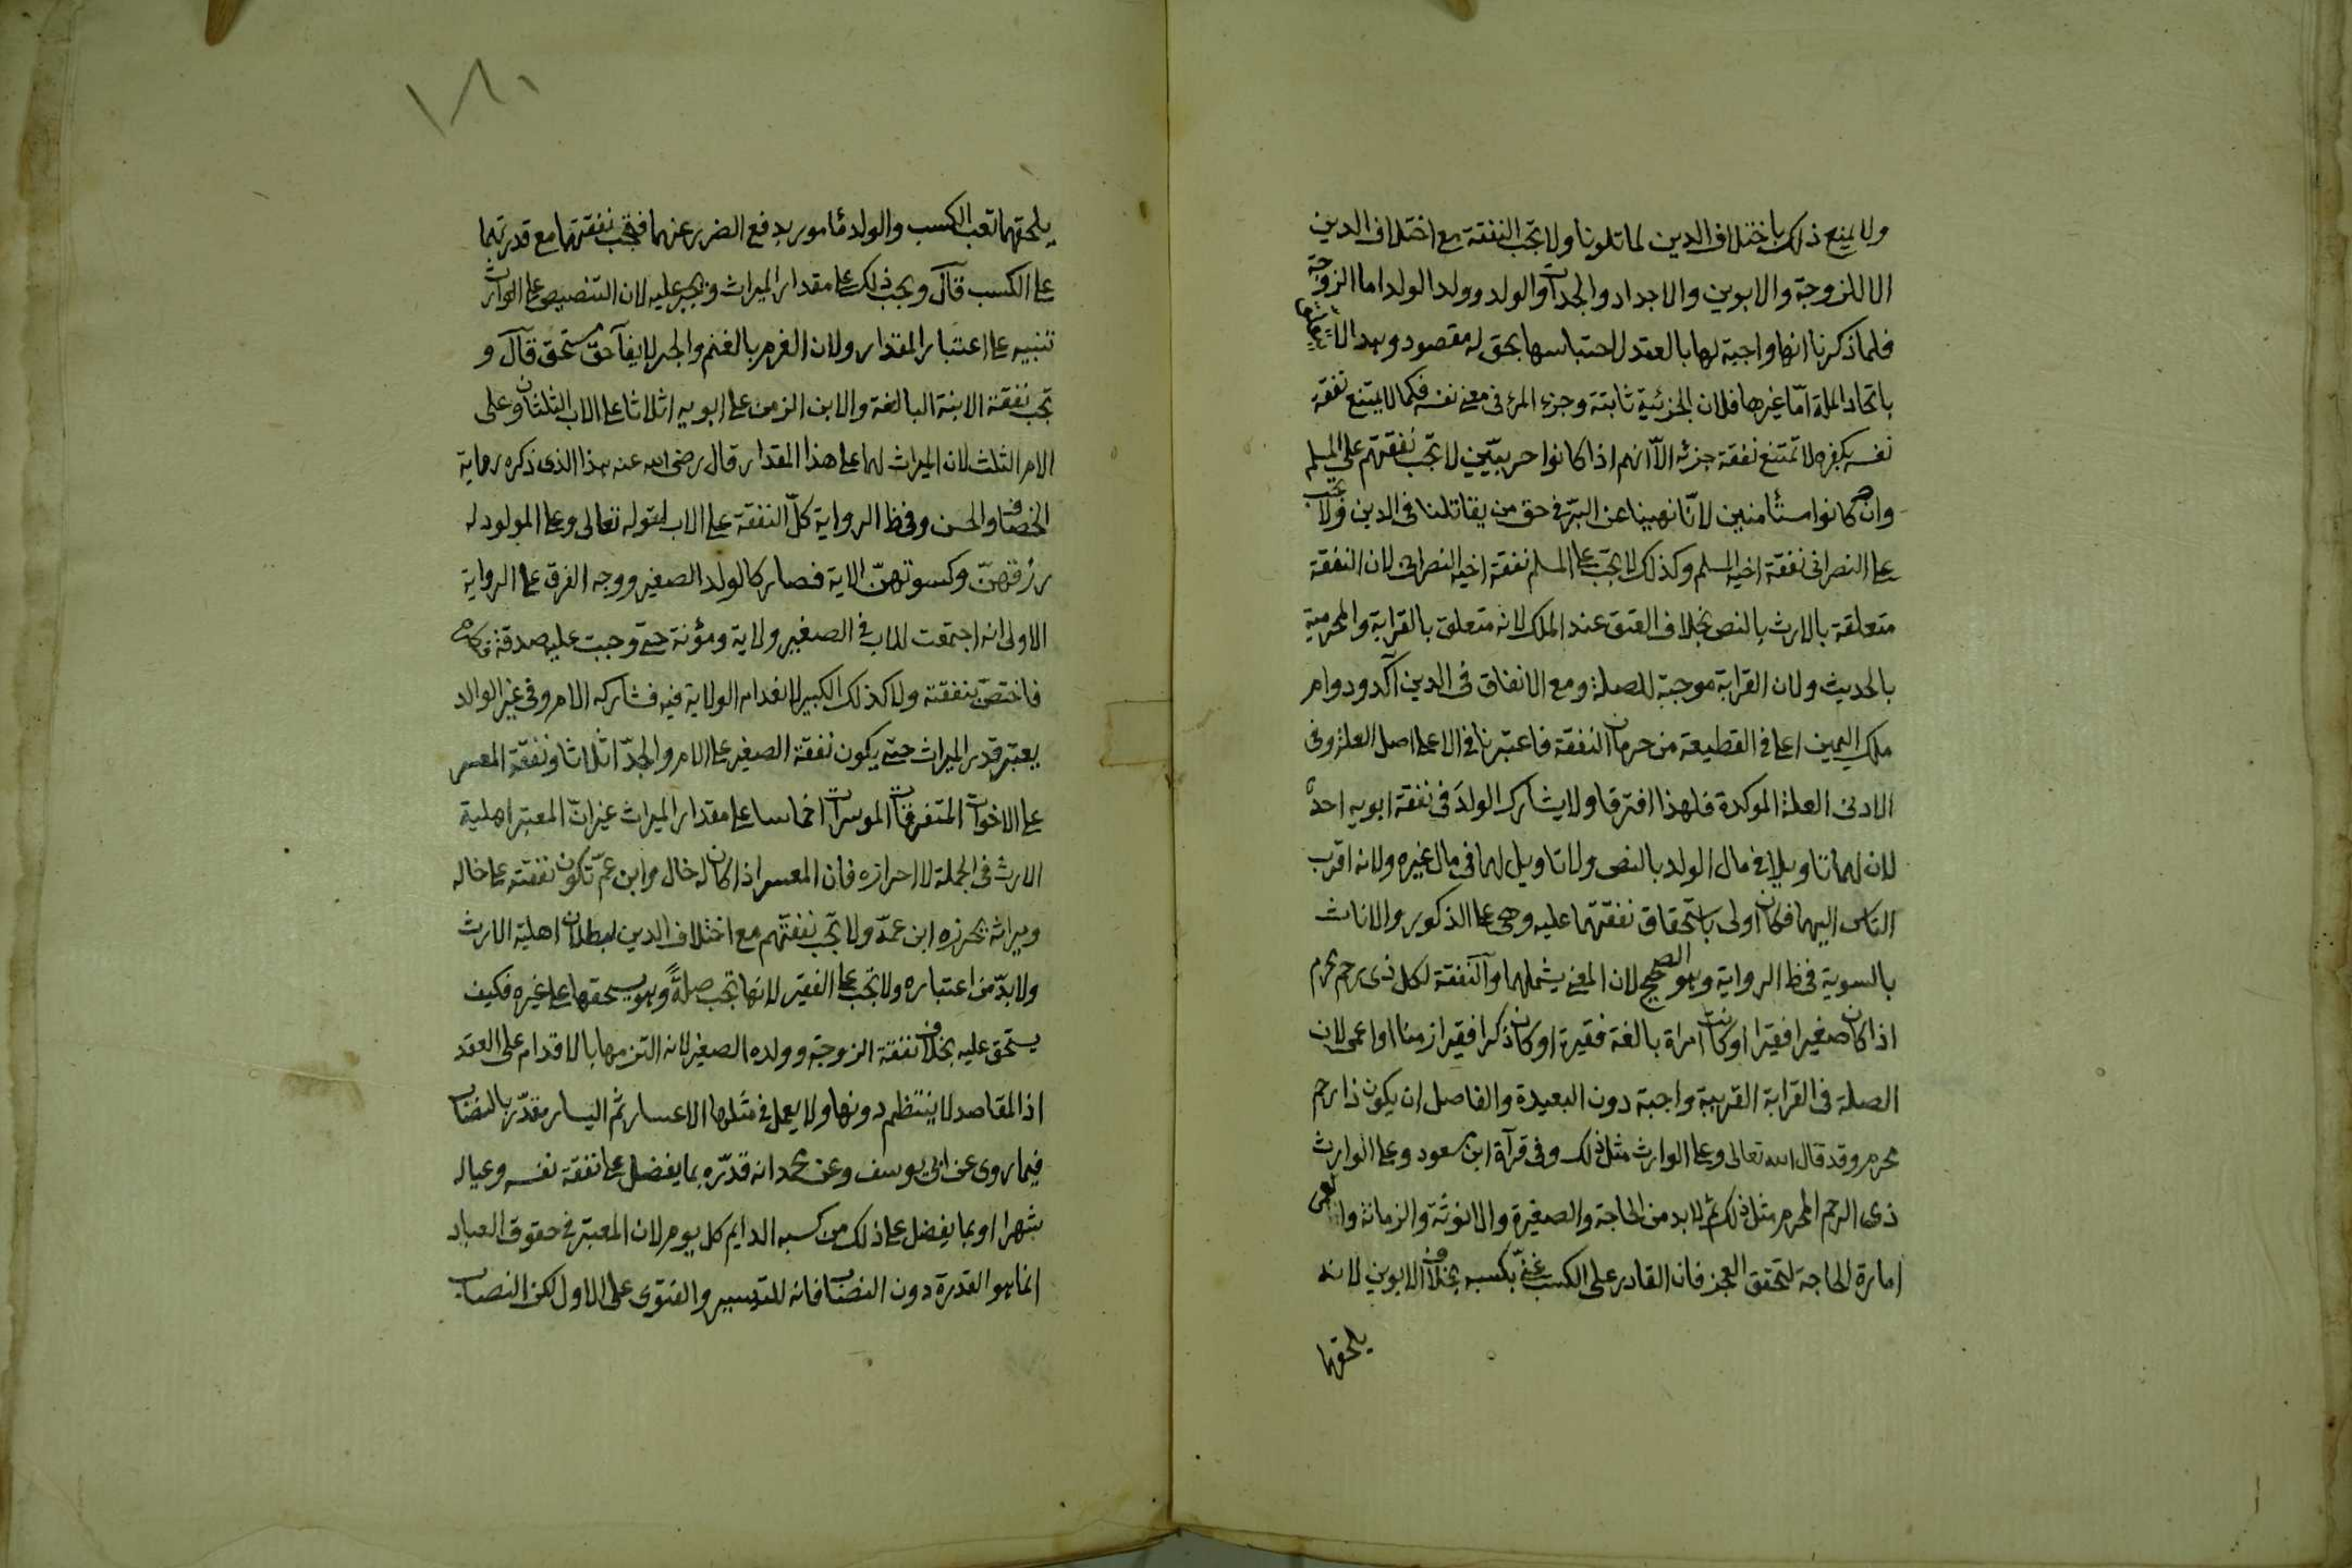 ولا يمنع ذلك باختلاف الدين لما تلونا ولا تجب النفقة مع اختلاف الدين
الا للزوجة والابوين والاجداد والجدات والولد وولد الولد اما الزوجة
فلما ذكرنا انها واجبة لها بالعقد لاحتباسها بحق له مقصود وهذا لا يتعلق
باتحاد الملة امّا غيرها فلان الجزئية ثابتة وجزء المرء فى معنى نفسه فكما لا يمتنع نفقة
نفسه بكفره لا تمتنع نفقة جزئه الّا انهم اذا كانوا حربيّين لا تجب نفقتهم على المسلم
وان كانوا مستأمنين لانّا نهينا عن البرّ فى حق من يقاتلنا فى الدين ولا تجب
على النصرانى نفقة اخيه المسلم وكذلك لا تجب على المسلم نفقة اخيه النصرانى لان النفقة
متعلقة بالارث بالنص بخلاف العتق عند الملك لانه متعلق بالقرابة والمحرمية
بالحديث ولان القرابة موجبة للصلة ومع الاتفاق فى الدين آكد ودوام
ملك اليمين اعلى فى القطيعة من حرمان النفقة فاعتبرنا فى الاعلى اصل العلة وفى
الادنى العلة الموكدة فلهذا افترقا ولا يشارك الولدَ فى نفقة ابويه احدٌ
لان لهما تاويلا فى مال الولد بالنص ولا تاويل لهما فى مال غيره ولانه اقرب
الناس اليهما فكان اولى باستحقاق نفقتهما عليه وهى على الذكور والاناث
بالسوية فى ظ الرواية وهو الصحيح لان المعنى يشملهما والنفقة لكل ذى رحم محرم
اذا كان صغيرا فقيرا او كانت امراة بالغة فقيرة او كان ذكرا فقيرا زمنا او اعمى لان
الصلة فى القرابة القريبة واجبة دون البعيدة والفاصل ان يكون ذا رحم
محرم وقد قال الله تعالى وعلى الوارث مثل ذلك وفى قرآة ابن مسعود وعلى الوارث
ذى الرحم المحرم مثل ذلك ثم لا بد من الحاجة والصغيرة والانوثة والزمانة والعمى
امارة الحاجة لتحقق العجز فان القادر على الكسب غنىّ بكسبه بخلاف الابوين لانه
يلحقهما
١٨٠
يلحقهما تعب الكسب والولد مأمور بدفع الضرر عنهما فتجب نفقتهما مع قدرتهما
على الكسب قال ويجب ذلك على مقدار الميراث ويجبر عليه لان التنصيص على الوارث
تنبيه على اعتبار المقدار ولان الغرم بالغنم والجبر لايفآ حق مستحق قال و
تجب نفقة الابنة البالغة والابن الزمن على ابويه اثلاثا على الاب الثلثان وعلى
الام الثلث لان الميراث لهما على هذا المقدار قال رضى الله عنه هذا الذى ذكره رواية
الخصاف والحسن وفى ظ الرواية كلّ النفقة على الاب لقوله تعالى وعلى المولود له
رزقهنّ وكسوتهنّ الاية فصار كالولد الصغير ووجه الفرق على الرواية
الاولى انه اجتمعت للاب فى الصغير ولاية ومؤنة حتى وجبت عليه صدقة فطره
فاختصّ بنفقته ولا كذلك الكبير لانعدام الولاية فيه فشاركه الام وفى غير الوالد
يعتبر قدر الميراث حتى يكون نفقة الصغير على الام والجدّ اثلاثا ونفقة المعسر
على الاخوات المتفرقات الموسرات اخماسا على مقدار الميراث غير انّ المعتبر اهلية
الارث فى الجملة لا احرازه فان المعسر اذا كان له خال وابن عمّ تكون نفقته على خاله
وميراثه يحرزه ابن عمه ولا تجب نفقتهم مع اختلاف الدين لبطلان اهلية الارث
ولا بدّ من اعتباره ولا تجب على الفقير لانها تجب صلةً وهو يستحقها على غيره فكيف
يستحق عليه بخلاف نفقة الزوجة وولده الصغير لانه التزمها بالاقدام على العقد
اذ المقاصد لا ينتظم دونها ولا يعمل فى مثلها الاعسار ثم اليسار مقدّر بالنصاب
فيما روى عن ابى يوسف وعن محمد انه قدّره بما يفضل على نفقة نفسه وعياله
شهرا او بما يفضل على ذلك من كسبه الدايم كل يوم لان المعتبر فى حقوق العباد
انما هو القدرة دون النصاب فانه للتيسير والفتوى على الاول لكن النصاب